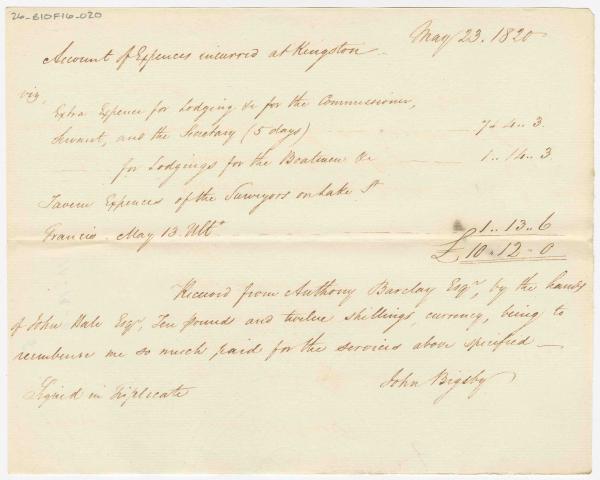 26-B10F16-020
May 23. 1820
Account of Expences incurred at Kingston
viz,
Extra Expence for Lodging &c for the Commissioner,
Servant, and the Secretary (5 days) 7 4 .. 3.
for Lodgings for the Boatmen &c 1 .. 14 .. 3
Tavern Expences of the Surveyors on Lake St
Francis. May 13 Ulto 1 .. 13 .. 6
£ 10 .. 12 .. 0
Received from Anthony Barclay Esqr, by the hands
of John Hale Esqr, Ten pounds and twelve shillings, currency, being to
reimburse me so much paid for the services above specified
John Bigsby
Signed in Triplicate